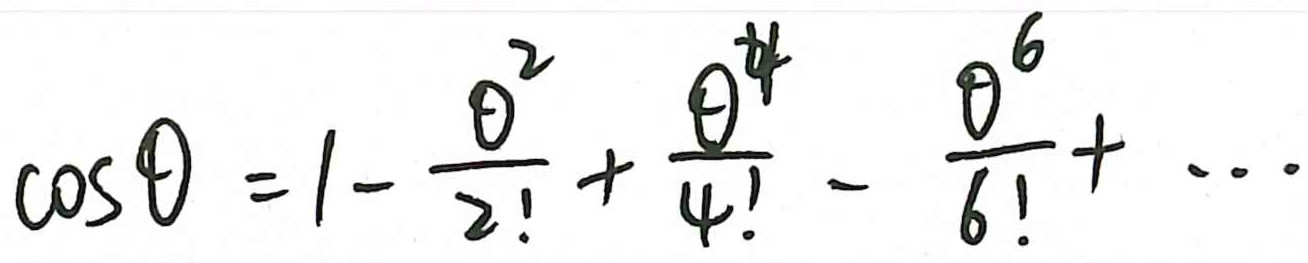 cos θ = 1 - θ²/2! + θ⁴/4! - θ⁶/6! + ...